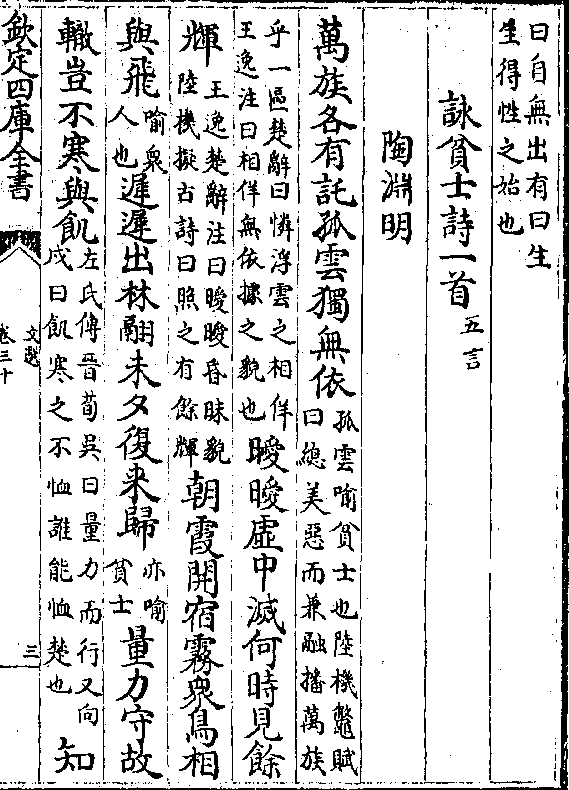 曰自無出有曰生
生得性之始也
詠貧士詩一首五言
陶淵明
萬族各有託孤雲獨無依孤雲喻貧士也陸機鼈賦曰總美惡而兼融播萬族
乎一區楚辭曰憐浮雲之相佯王逸注曰相佯無依據之貌也曖曖虛中滅何時見餘
輝王逸楚辭注曰曖曖昏昧貌陸機擬古詩曰照之有餘輝朝霞開宿霧衆鳥相
與飛喻衆人也遲遲出林翮未夕復来歸亦喻貧士量力守故
轍豈不寒與飢左氏傳晉荀吳曰量力而行又向戌曰飢寒之不恤誰能恤楚也知
欽定四庫全書
文選
卷三十
三